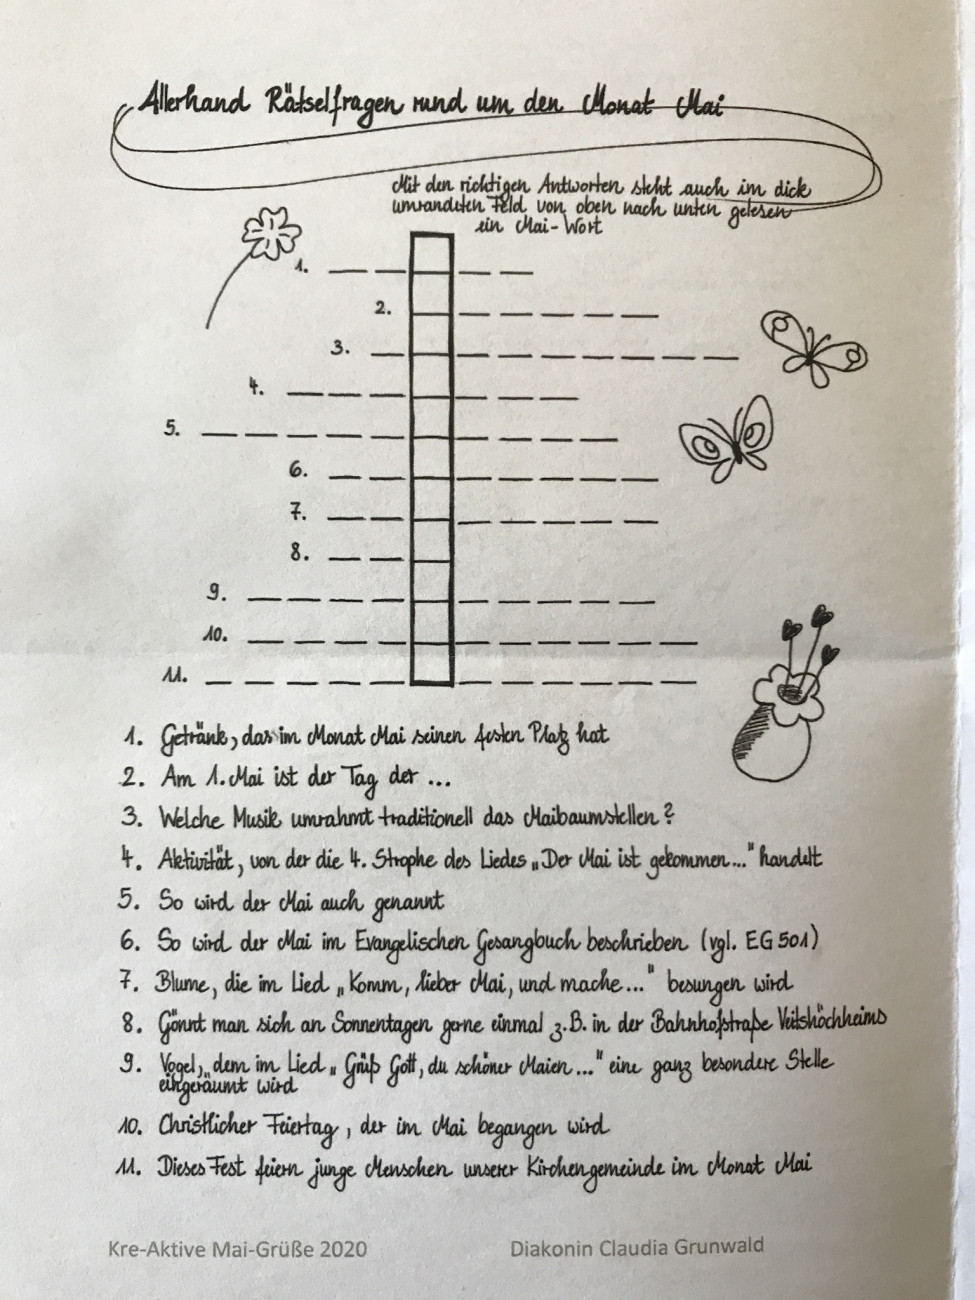 Allerhand Rätselfragen rund um den Monat Mai
Mit den richtigen Antworten steht auch im dick
umrandeten Feld von oben nach unten gelesen
ein Mai-Wort
1.
2.
3.
4.
5.
6.
7.
8.
9.
10.
11.
1. Getränk, das im Monat Mai seinen festen Platz hat
2. Am 1. Mai ist der Tag der ...
3. Welche Musik umrahmt traditionell das Maibaumstellen?
4. Aktivität, von der die 4. Strophe des Liedes „Der Mai ist gekommen..." handelt
5. So wird der Mai auch genannt
6. So wird der Mai im Evangelischen Gesangbuch beschrieben (vgl. EG 501)
7. Blume, die im Lied „Komm, lieber Mai, und mache..." besungen wird
8. Gönnt man sich an Sonnentagen gerne einmal z.B. in der Bahnhofstraße Veitshöchheims
9. Vogel, dem im Lied „Grüß Gott, du schöner Maien..." eine ganz besondere Stelle
eingeräumt wird
10. Christlicher Feiertag, der im Mai begangen wird
11. Dieses Fest feiern junge Menschen unserer Kirchengemeinde im Monat Mai
Kre-Aktive Mai-Grüße 2020 Diakonin Claudia Grunwald